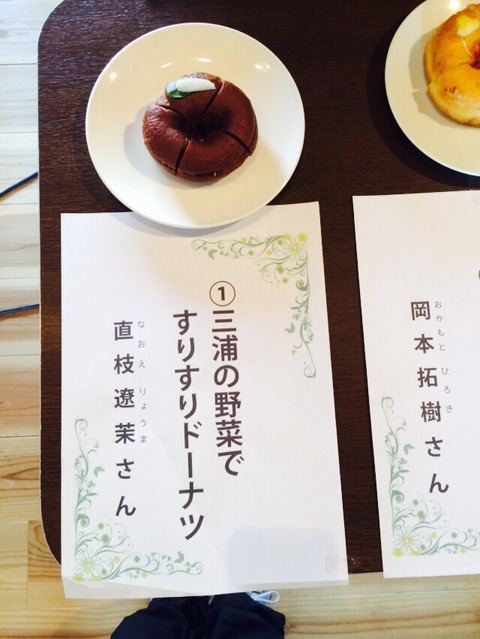 ①三浦の野菜で
すりすりドーナツ
なおえ りょうま
直枝遼茉さん
おかもと ひろき
岡本拓樹さん